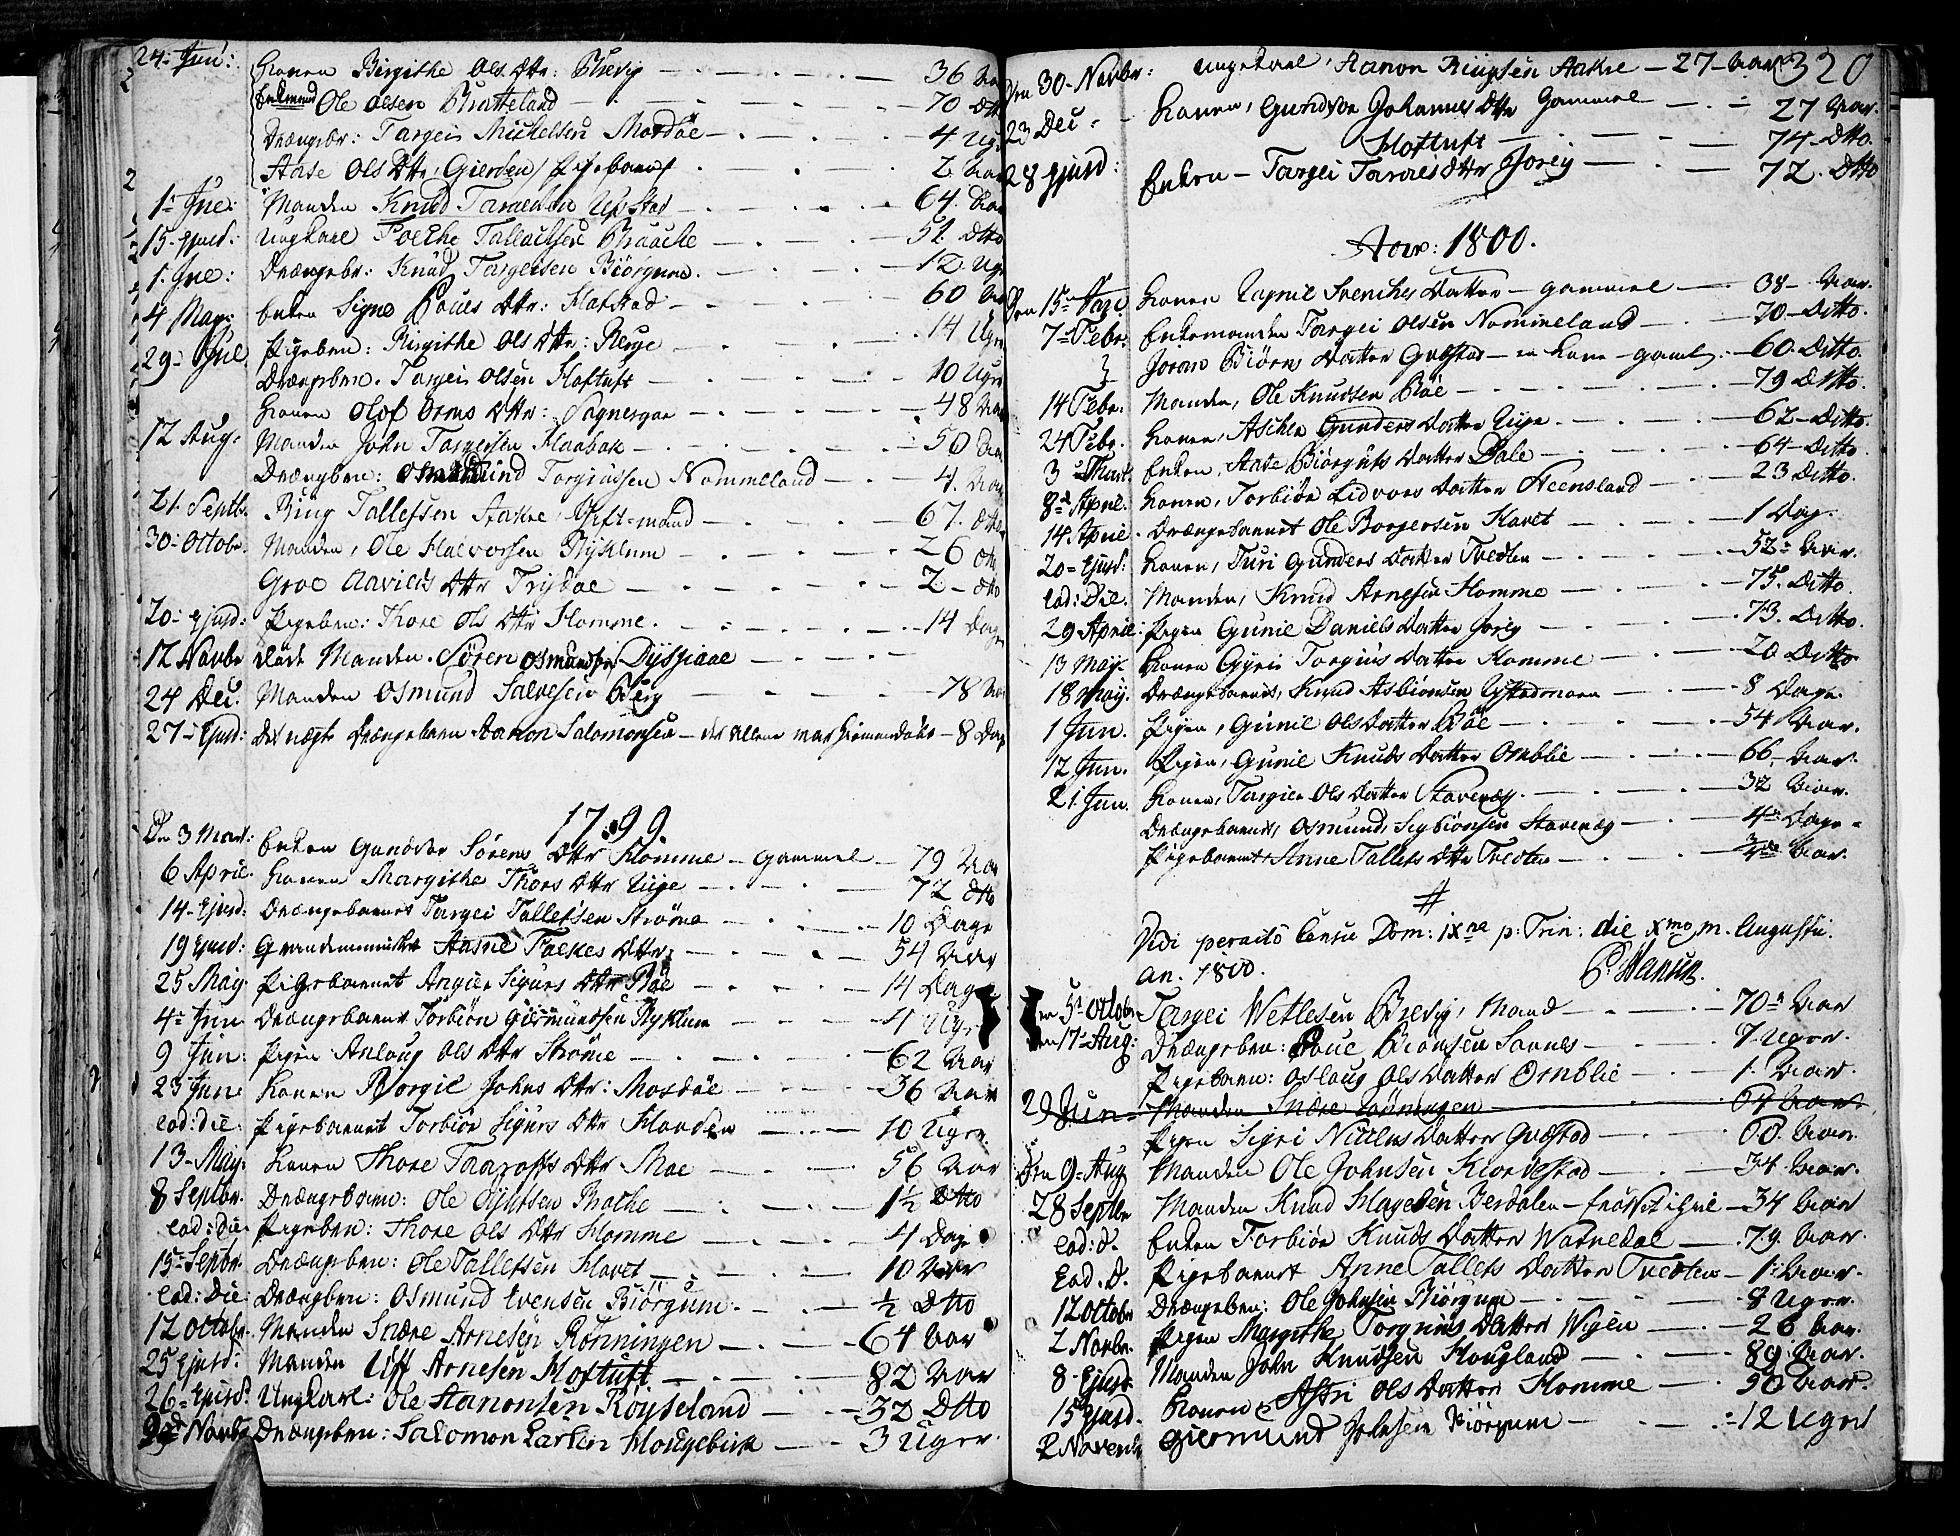 24: Jun: Konen Birgithe Ols Dtr: Brevig — 36 Aar
Enkemand Ole Olsen Bratteland — 70 Dtto
Drængebr: Targei Michelsen Mosdøe — 4 Ugr
Aase Ols Dttr, Gierden / Pigebarnet — 2 Aar
1: Jul: Manden Knud Taraldsen Upstad — 64 Aar
15 Ejusd: Ungkarl Foelke Tallachsen Braache — 51 Dtto
1. Jul: Drængebr: Knud Targeisen Biörgum — 12 Ugr
4 May: Enken Signe Poues Dttr: Harstad — 60 Aar
29 Jul Pigebrn: Birgithe Ols Dttr: Berge — 14 Ugr
Drængebrn. Targei Olsen Hoftuft — 10 Ugr
Konen Olof Orms Dttr: Sognesgar — 48 Aar
12 Aug: Manden John Targeisen Haabak — 50 Aar
Drængbrn: Osmund Torgiusen Nommeland — 4. Aar
21. Septb. Ring Tallefsen Aakre, Gift-mand — 67. Dtto
30 Octobr. Manden, Ole Halvorsen Rÿklum — 26 Dtto
Groe Aavilds Dttr Frÿsdoe — 2 - Dtto
20 Ejusd: Pigebrn: Thore Ols Dttr Homme — 14 Dage
12 Novbr døde Manden Søren Osmundsen Dÿsiaae —
24 Dec. Manden Osmund Salvesen Berg — 78 Aar
27 Ejusd: Det uægte Drængebarn Aanon Salomonsen — der allene var hiemmedøbt — 8 Dage
1799.
Den 3 Mart: Enken Gundvor Sørens Dttr Homme — gammel — 79 Aar
6 April. Konen Margithe Thors Dttr Uige — 72 Dtto
14 Ejusd: Drængebarnet Targei Tallefsen Strøme — 10 Dage
19 Ejusd: Qvindemennisket Aasne Folkes Dttr — 54 Aar
25 May. Pigebarnet Angier Sigurs Dttr Bøe — 14 Dage
4 Jun Drængebarnet Torbiön Giermundsen Rÿklum — 4 Ugr
9 Jun: Pigen Anlaug Ols Dttr Strøme — 62 Aar
23 Jun. Konen Borgil Johns Dttr: Mosdøe — 36 Aar
ead: die. Pigebarnet Torbiör Sigurs Dttr Harden — 10 Ugr.
13 May. Konen Thore Taaroffs Dttr Moe — 56 Aar
8 Septbr. Drængebarn: Ole Gjutsen Brothe — 1½ Dtto
ead: die. Pigebrn: Thore Ols Dttr Homme — 4 Dage
15 Sepbr. Drængebrn: Ole Tallefsen Havet — 10 Aar
ead: Die Drængbrn: Osmund Evensen Biörgum — ½ Dtto
12 Octobr. Manden Snære Arnesen Rönningen — 64 Aar
25 Ejusd: Manden Uff Arnesen Hoftuft — 82 Aar
26 Ejusd: Ungkarl: Ole Aanonsen Röyseland — 32 Dtto
Novbr Drængebrn: Salomon Larsen Hougebirk — 3 Uger
320
Den 30 Novbr: Ungekarl, Aanon Ringsen Aakre — 27 Aar
23 Dec. Konen, Gundvor Johannes Dttr gammel — 27 Aar.
Hoftuft — 74 Dtto.
28 Ejusd: Enken — Targei Tarres Dttr Jorig — 72. Dtto
Aar: 1800.
Den 15 Janr. Konen Ragnil Svenches Datter — gammel — 38 — Aar.
7 Febr. Enkemanden Targei Olsen Nommeland — 70 — Ditto.
Joran Biörns Datter Qvæstad — en Kone — gaml — 60. Ditto
14 Febr. Manden, Ole Knudsen Bøe — 79 Ditto.
24 Febr. Konen, Aschler Gunders Datter Uige — 62 — Ditto.
3 Mart. Enken, Aase Biörgufs Datter Dale — 64 — Ditto.
8 April. Konen, Torbiör Lidvors Datter Heensland — 23 Ditto.
14. April. Drængebarnet Ole Borgersen Havet — 1 Dag.
20 Ejusd: Konen, Turi Gunders Datter Tvedten — 52 Aar.
ead: Die. Manden, Knud Arnesen Homme — 75. Ditto.
29 April. Pigen Gunil Daniels Datter Jorig — 73. Ditto.
13 May. Konen Gyri Torgius Datter Homme — 20 Ditto
18 May. Drængebarnet, Knud Asbiönsen Upstadmoen — 8 Dage.
1 Jun. Pigen, Gunil Ols Datter Bøe — 54 Aar.
12 Jun. Pigen, Gunil Knuds Datter Omblie — 66 Aar.
21. Jun. Konen, Targier Ols Datter Stavenæs — 32 Aar.
Drængebarnet, Osmund, Sigbiönsen Stavenæs — 4 Dage
Pigebarnet Anne Tallefs Dttr Tvedten — Aar.
#
Vidi peracto Censu Dom: ix:ne p: Trin: die Xmo m. Augusti.
an. 1800. P. Hansen.
Den 5 Octobr Targei Wetlesen Brevig, Mand — 70 Aar
Den 17 Aug: Drængebrn: Poul Biönsen Sannes — 7 Uger.
Pigebarn: Oslaug Ols Datter Omblie — 1. Aar.
29 Jun — Manden Snære Rönningen — 64 Aar.
Pigen Sigri Niclus Datter Qvæstad — 60. Aar.
Den 9 Aug Manden Ole Johnsen Kiorvestad — 34 Aar.
28 Septbr Manden Knud Hagesen Berdalen — — 34 Aar
ead: d. Enken Torbiör Knuds Datter Watnedal — 79 Aar.
Ead. D. Pigebarnet Anne Tallefs Datter Tvedten — 1 Aar.
12 Octobr Drængebrn: Ole Johnsen Biörgum — 8 Uger.
2 Novbr. Pigen Margithe Torgrims Datter Wigen — 26 Aar.
8 Ejusd. Manden John Knudsen Hougland — 89 Aar.
15 Ejusd. Konen Astri Ols Datter Homme — 50 Aar.
2 Novemb. Giermund Johnsen Biörgum — 12 Uger